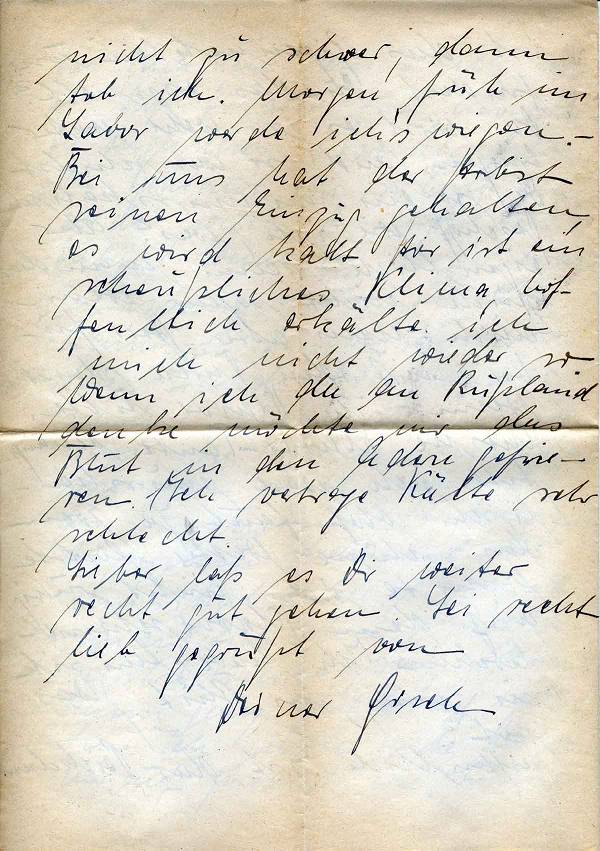 nicht zu schwer, dann
tob ich. Morgen früh im
Labor werde ich's wiegen. –
Bei uns hat der Herbst
seinen Einzug gehalten,
es wird kalt. ist ein
scheußliches Klima, hof-
fentlich erkälte ich
mich nicht wieder so
Wenn ich da an Rußland
denke möchte mir das
Blut in den Adern gefrie-
ren. Ich vertrage Kälte sehr
schlecht.
Lieber, laß es Dir weiter
recht gut gehen. Sei recht
lieb gegrüßt von
Deiner